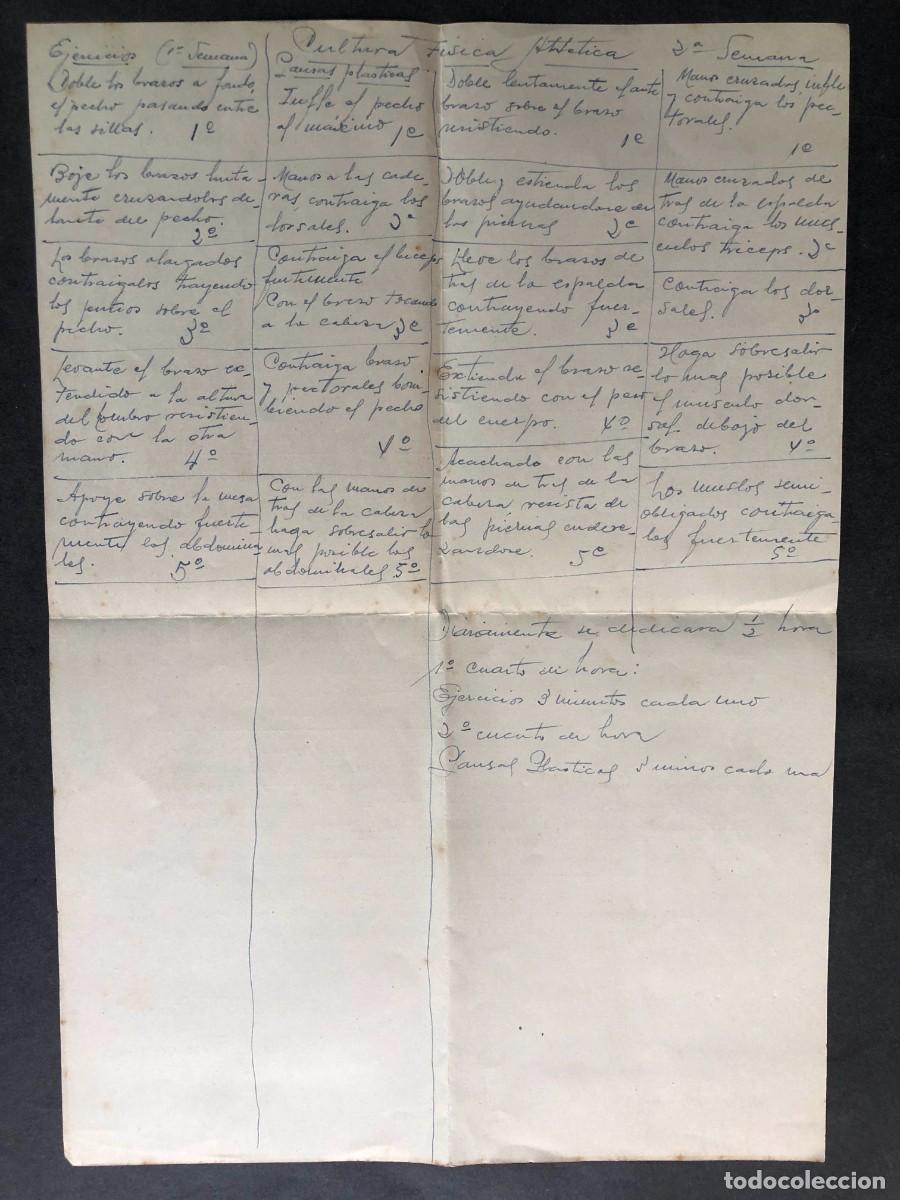 Cultura Fisica Atletica
Ejercicios (1ª Semana)
Doble los brazos a fondo,
el pecho pasando entre
las sillas. 1º
Baje los brazos lenta-
mente cruzandolos de-
lante del pecho. 2º
Los brazos alargados
contraigalos trayendo
los juntos sobre el
pecho. 3º
Levante el brazo ex-
tendido a la altura
del hombro resistien-
do con la otra
mano. 4º
Apoye sobre la mesa
contrayendo fuerte
mente los abdomina
les. 5º
Pausas plasticas
Infle el pecho
al maximo 1º
Manos a las cade-
ras contraiga los
dorsales. 2º
Contraiga el biceps
fuertemente
Con el brazo tocando
a la cabeza 3º
Contraiga brazo
y pectorales bom-
biendo el pecho
4º
Con las manos de
tras de la cabeza
haga sobresalir lo
mas posible los
abdominales 5º
Doble lentamente el ante
brazo sobre el brazo
resistiendo.
1º
Doble y estienda los
brazos ayudandose de
las piernas 2º
Lleve los brazos de
tras de la espalda
contrayendo fuer-
temente. 3º
Extienda el brazo re-
sistiendo con el peso
del cuerpo. 4º
Acachado con las
manos de tras de la
cabeza, resista de
las piernas endere-
zandose. 5º
2ª Semana
Manos cruzados infle
y contraiga los pec-
torales.
1º
Manos cruzados de
tras de la espalda
contraiga los mus-
culos triceps. 2º
Contraiga los dor-
sales. 3º
Haga sobresalir
lo mas posible
el musculo dor-
sal debajo del
brazo. 4º
Los muslos semi-
obligados contraiga-
los fuertemente
5º
Diariamente se dedicara ½ hora
1º cuarto de hora:
Ejercicios 3 minutos cada uno
2º cuarto de hora
Pausas Plasticas 3 minos cada una
todocoleccion